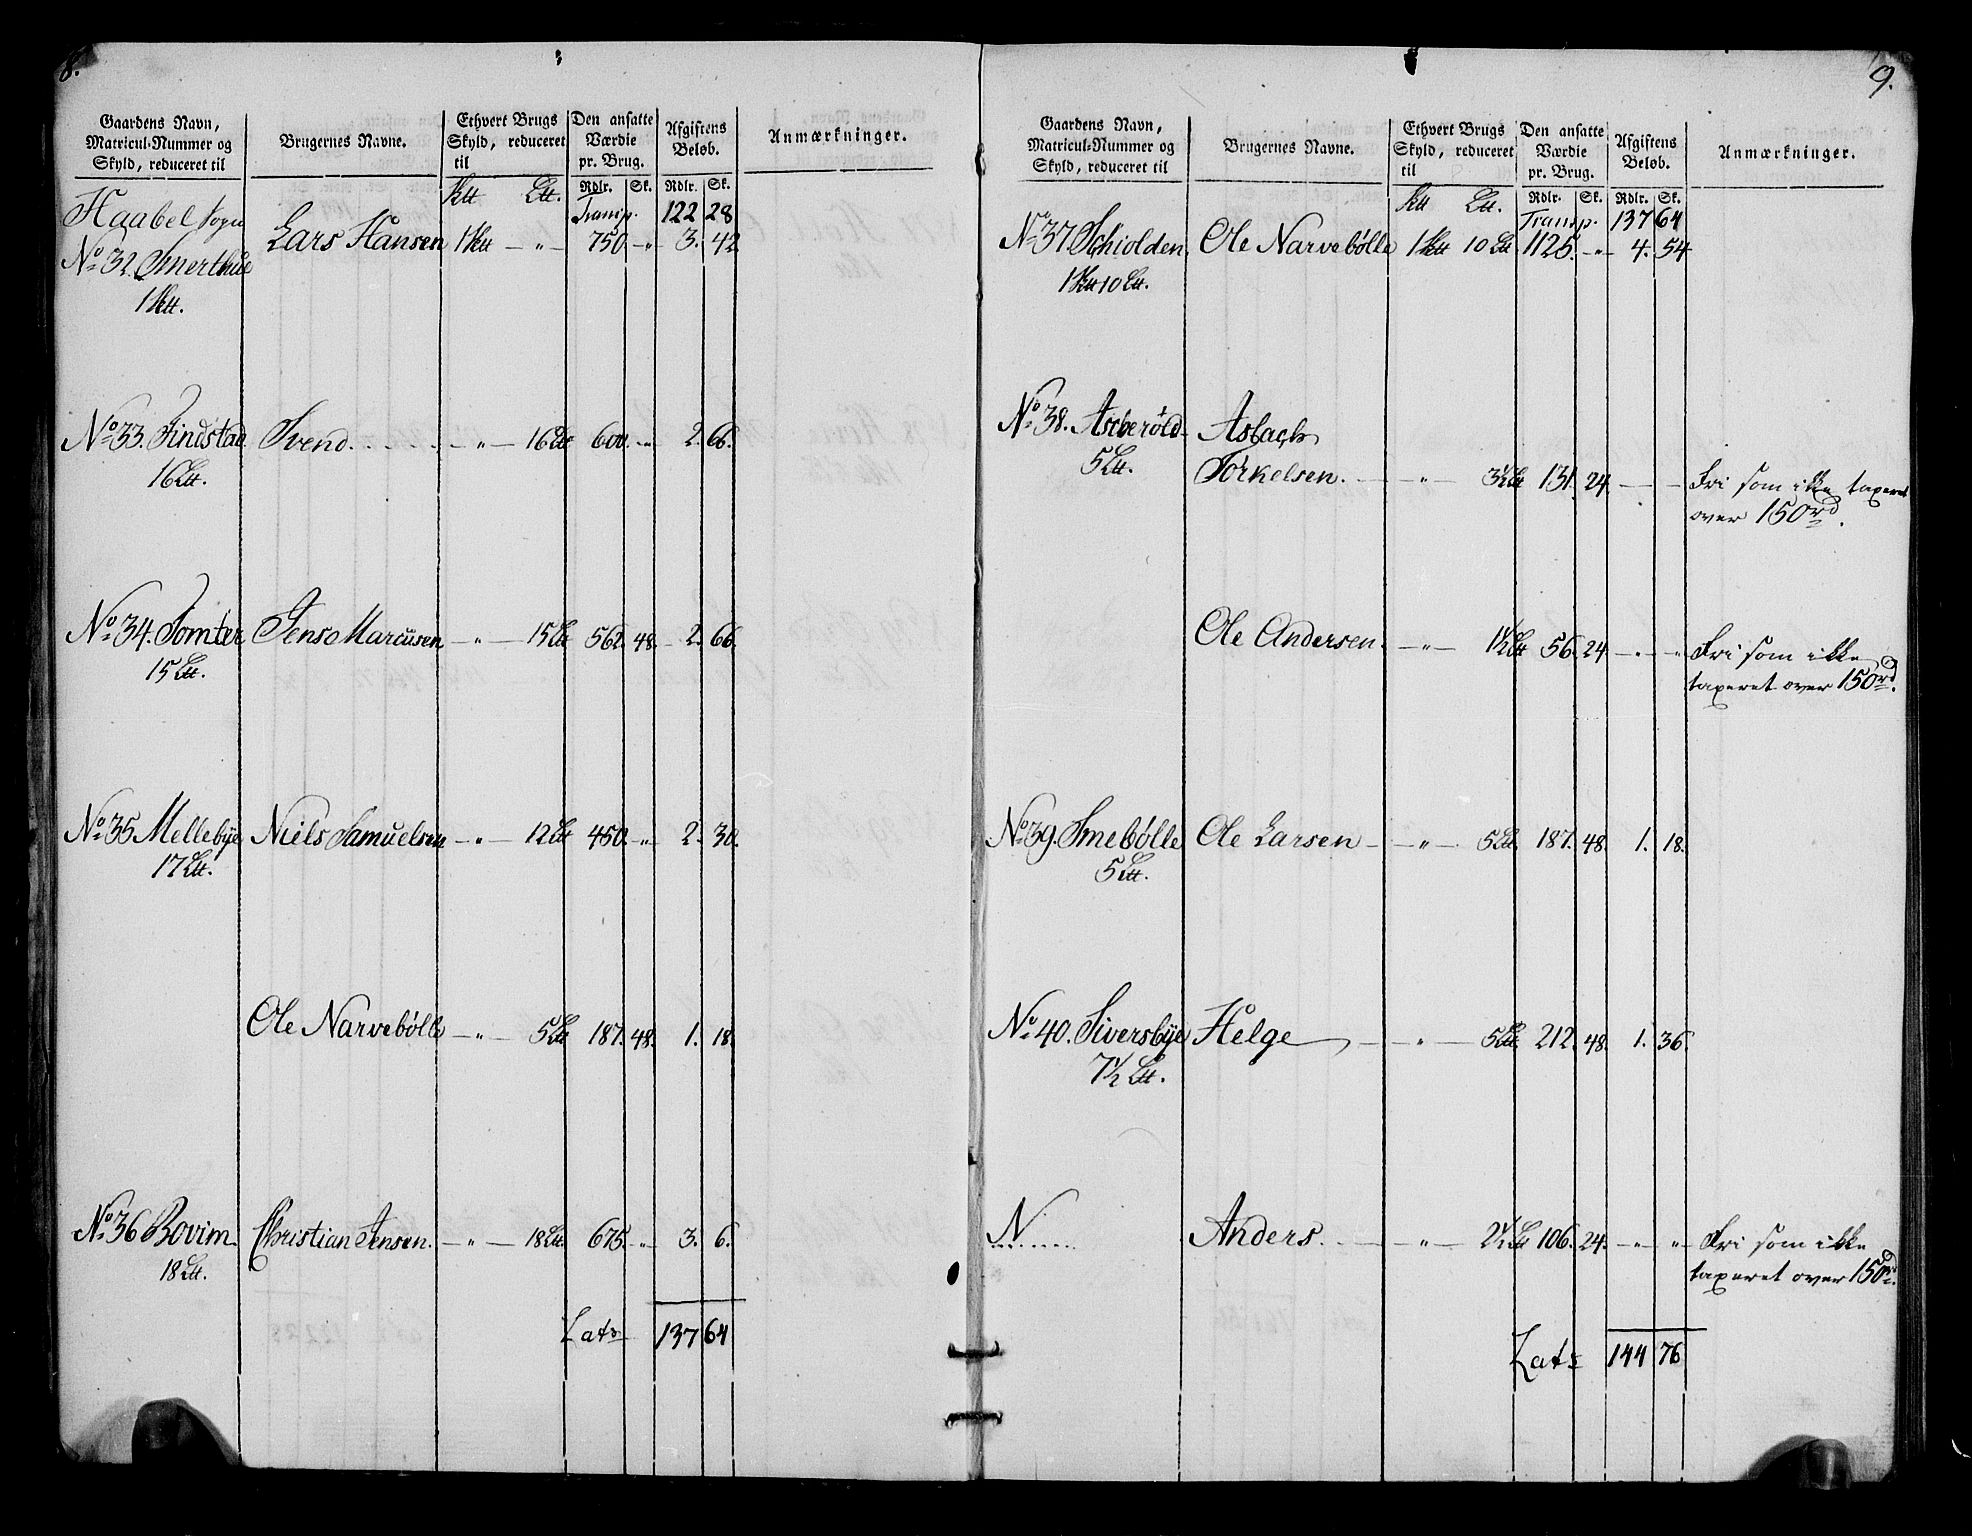 8.
Gaardens Navn, Matricul-Nummer og Skyld, reduceret til
Brugernes Navne.
Ethvert Brugs Skyld, reduceret til
Den ansatte Værdie pr. Brug.
Afgiftens Beløb.
Anmærkninger.
Rdlr. Sk. Rdlr. Sk.
Haabel Sogn Transp. 122 28
No 32. Smerthue Lars Hansen 1 - " - 750. - " - 3. 42
1
No 33. Findstad Svend. . . . . . - " - 16 600. - " - 2. 66.
16
No 34. Tomter Jens Marcusen - " - 15 562. 48. - 2. 66.
15
No 35 Mellebÿe Niels Samuelsen - " - 12 450. - " - 2. 30.
17
Ole Narvebølle - " - 5 187. 48. 1. 18.
No 36 Bovim. Christian Jensen. - " - 18 675. - " - 3. 6.
18
Lats 137 64
9.
Gaardens Navn, Matricul-Nummer og Skyld, reduceret til
Brugernes Navne.
Ethvert Brugs Skyld, reduceret til
Den ansatte Værdie pr. Brug.
Afgiftens Beløb.
Anmærkninger.
Rdlr. Sk. Rdlr. Sk.
Transp. 137 64
No 37 Schiolden. Ole Narvebølle 1 10 1125. - " - 4. 54
1 10
No 38. Asbach
5 Torkelsen. - " - 3½ 131. 24. - - Fri som ikke taxeret
over 150 rd.
Ole Andersen. - " - 1½ 56. 24 - " - " Fri som ikke
taxeret over 150 rd.
No 39. Smebølle Ole Larsen - - " - 5 187. 48 1. 18.
5
No 40. Siversbÿe Helge - - " - 5 212. 48. 1. 36.
7½
N..... Anders. - - " - 2½ 106. 24. - " - " Fri som ikke
taxeret over 150 rd.
Lats 144 76